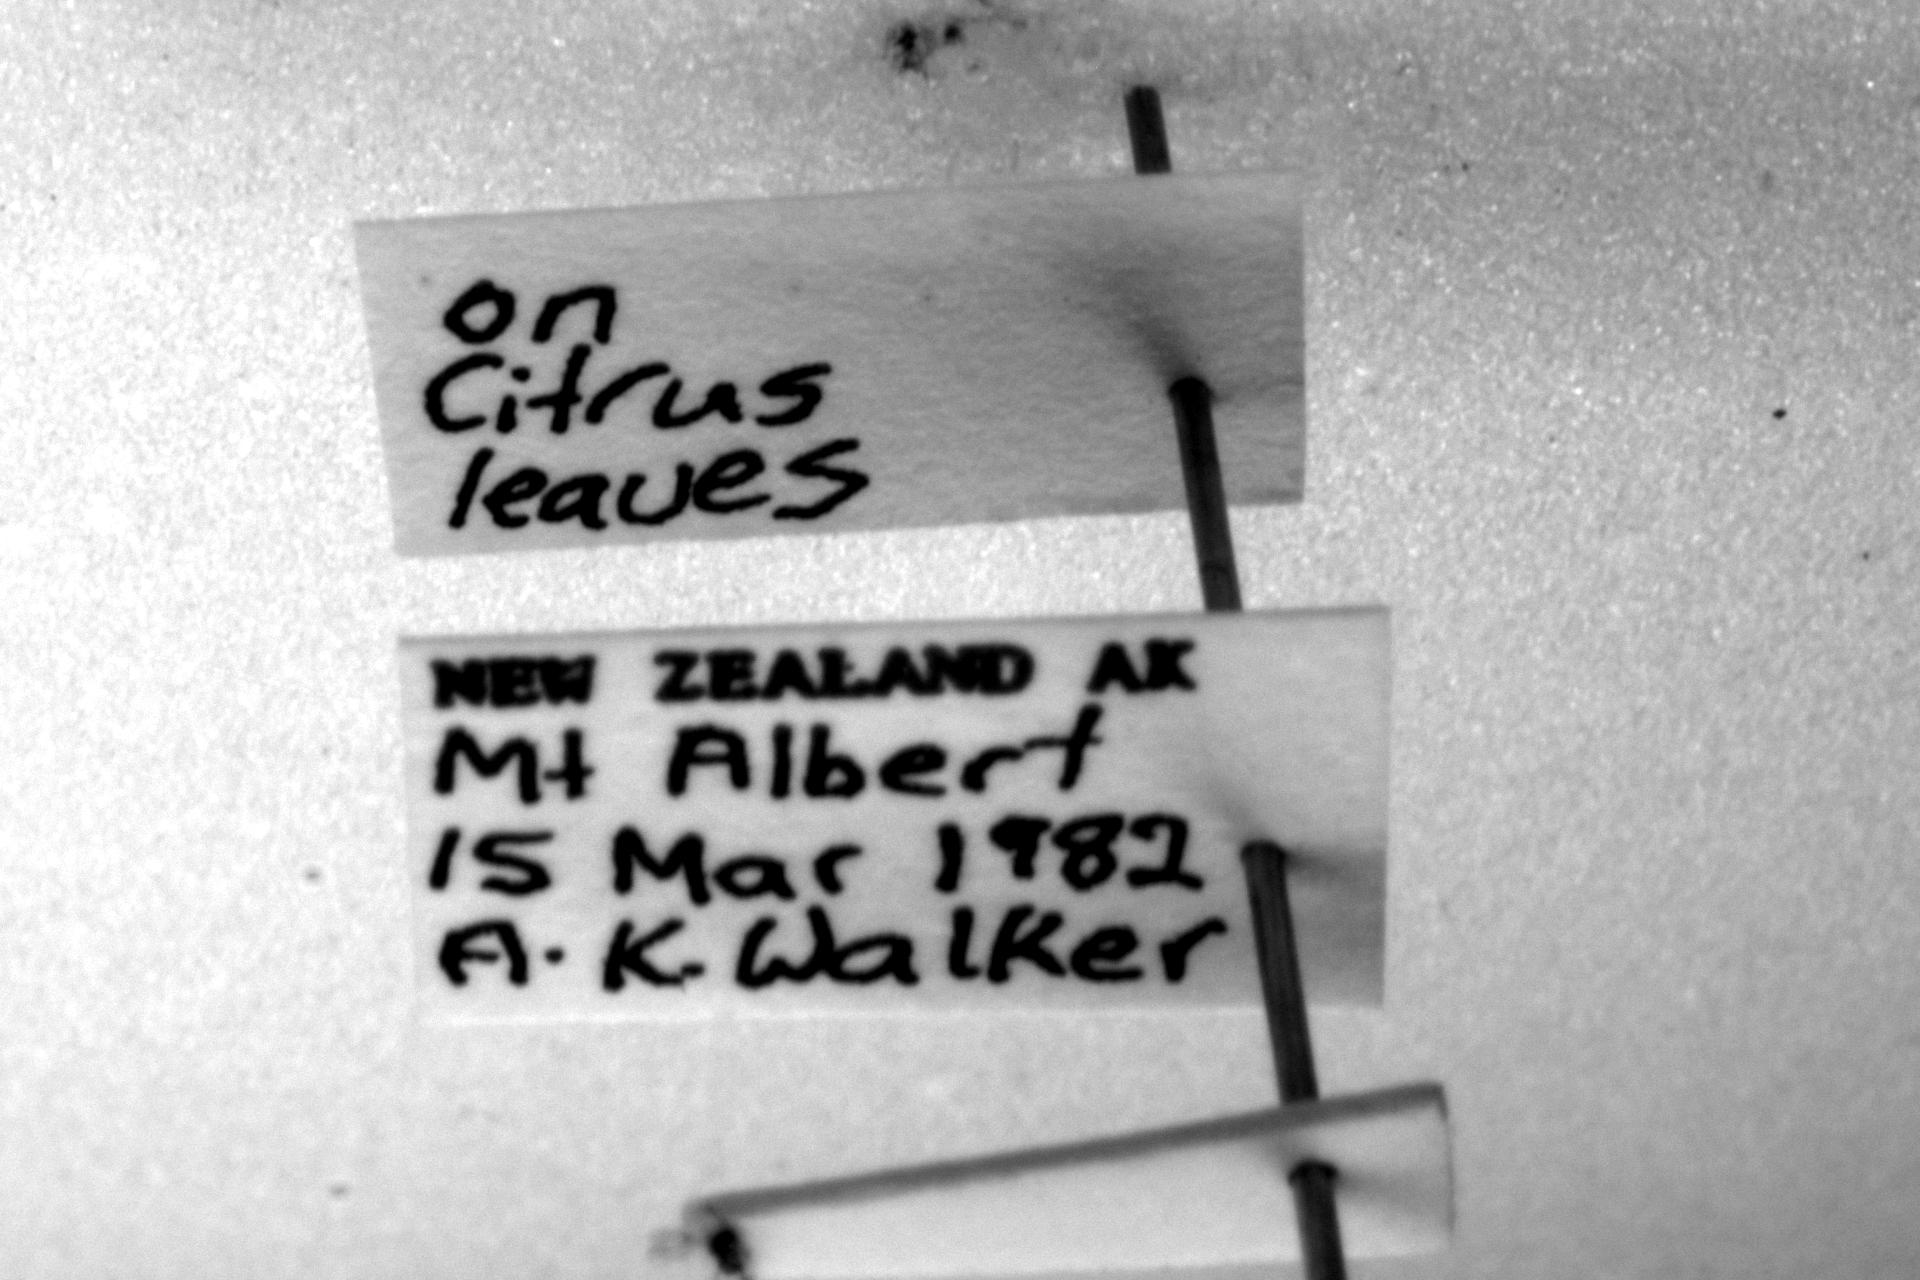 on
Citrus
leaves
NEW ZEALAND AK
Mt Albert
15 Mar 1982
A. K. Walker